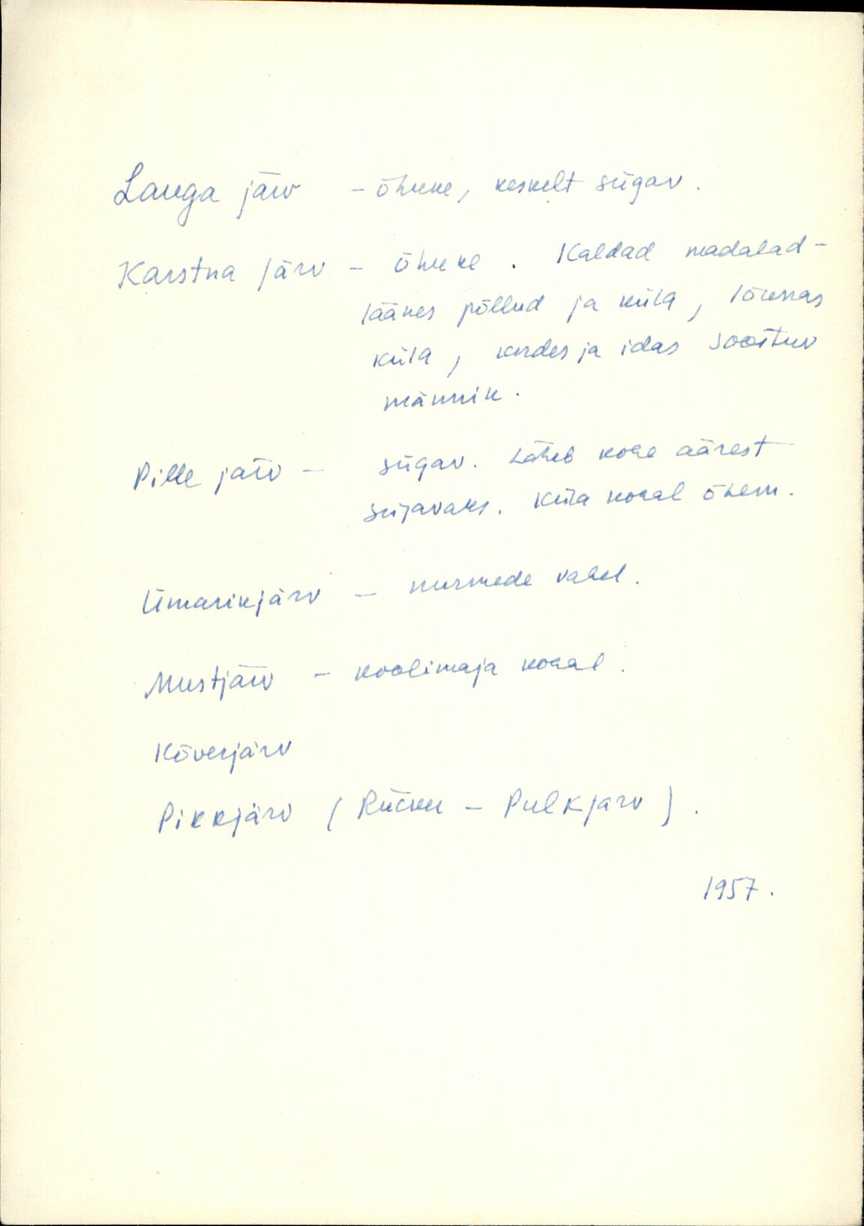 Lauga järv – õhuke, keskelt sügav.
Karstna järv – õhuke. Kaldad madalad –
läänes põllud ja küla, lõunas
küla, kirdes ja idas soostuv
männik.
Pille järv – sügav. Läheb kohe äärest
sügavaks. Küla kohal õhem.
Ümarikjärv – nurmede vahel.
Mustjärv – koolimaja kohal.
Kõverjärv
Pikkjärv ( – Pulkjärv).
1957.